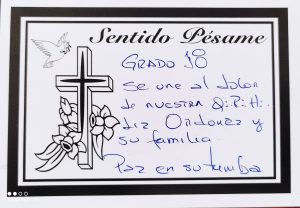 Sentido Pésame
GRADO 18
Se une al dolor
de nuestra Q∴P∴H∴
Liz Ordonez y
su familia.
Paz en su tumba